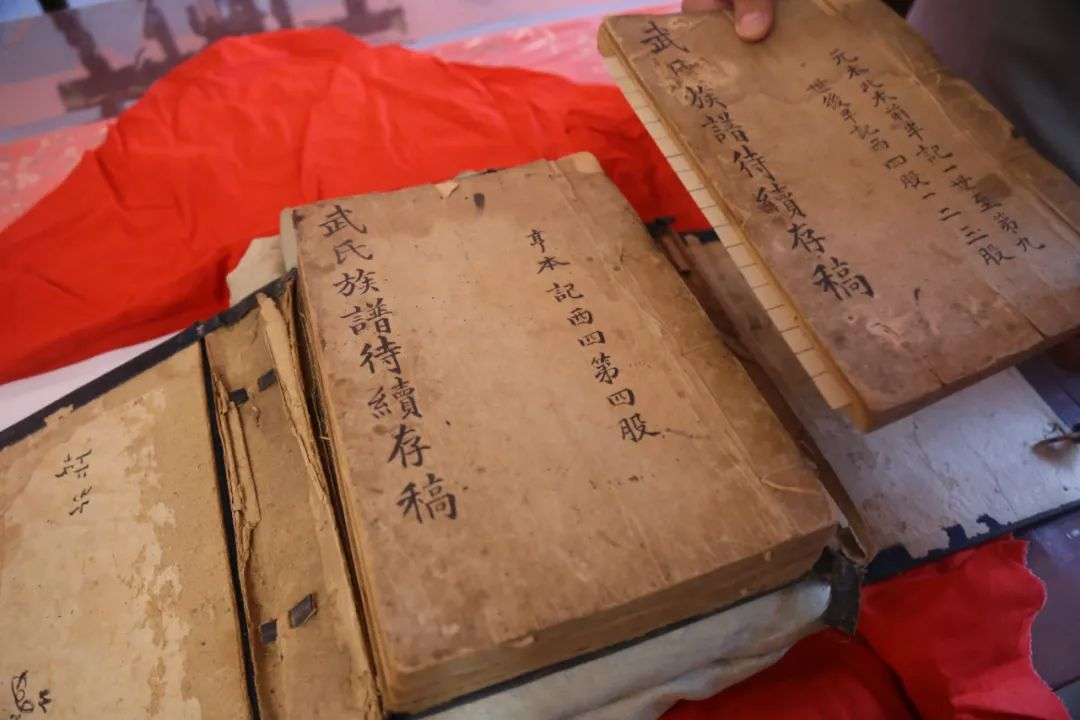 元本此本前半記一世至第九
世後半記西四股一二三股
武氏族譜待續存稿
亨本 記西四第四股
武氏族譜待續存稿